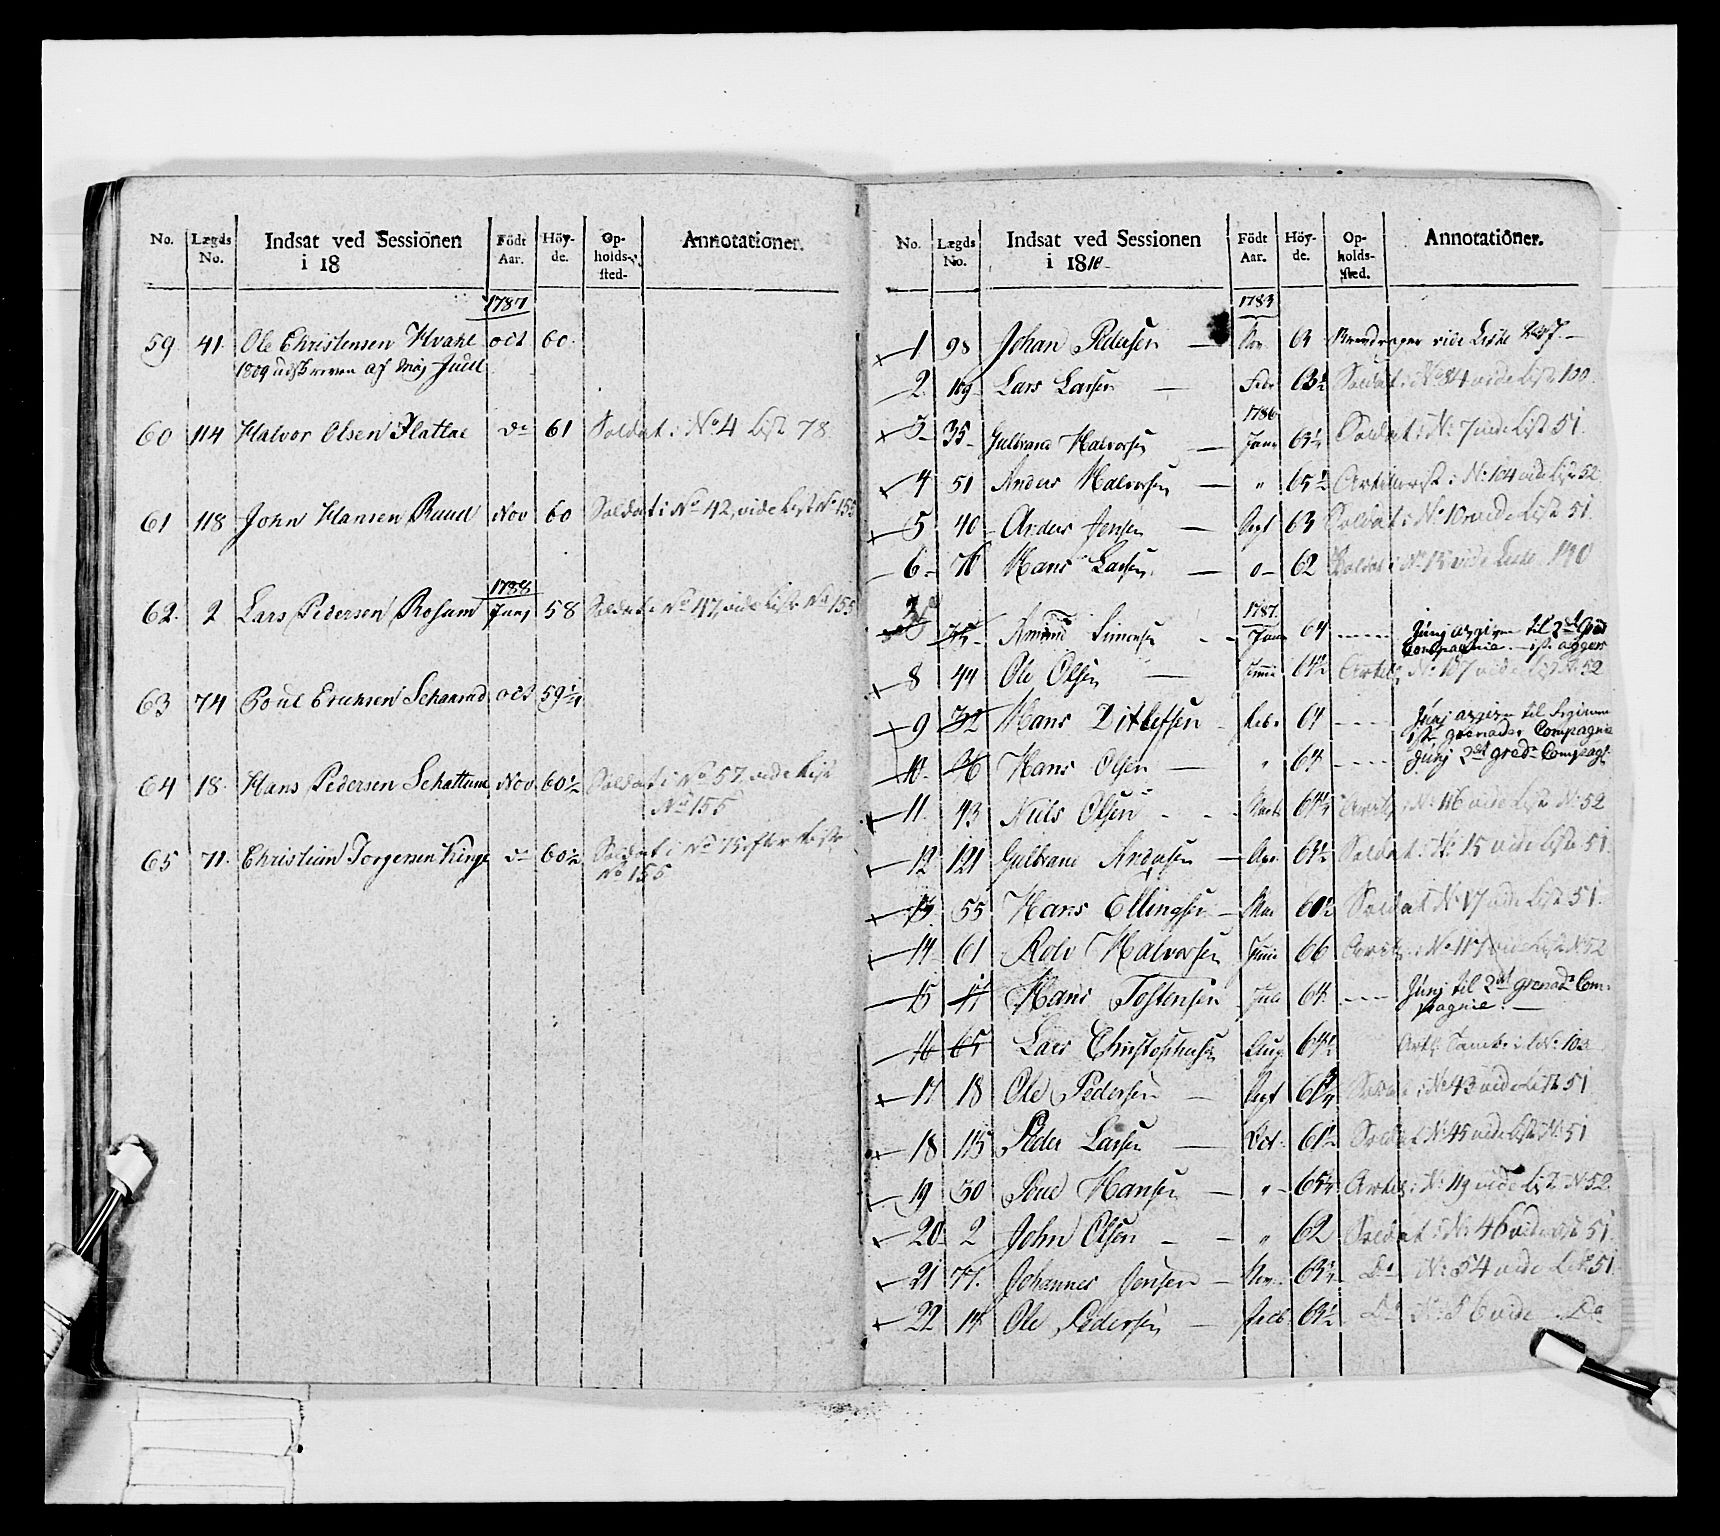 No. Lægds No. Indsat ved Sessionen i 18 Födt Aar. Höy-de. Op-holds-sted. Annotationer.
1787
59 41 Ole Christensen Hvahl oct 60
1809 udskreven af Maj Juel
60 114 Halvor Olsen Flattae d- 61 Soldat i No 4 List 78
61 118 John Hansen Ruud Nov 60 Soldat i No 42, vide List No 155
1788
62. 2 Lars Pedersen Rosum Junj 58 Soldat i No 47, vide Liste No 155
63 74 Poul Erichsen Schaarud oct 59 1/4
64 18. Hans Pedersen Schattum Nov 60 1/2 Soldat i No 57 vide List
No 155
65 71. Christian Torgersen d- 60 1/2 Soldat i No 75 efter Liste
No 155
No. Lægds No. Indsat ved Sessionen i 1810. Födt Aar. Höy-de. Op-holds-sted. Annotationer.
1783
1 98 Johan Pedersen — Nov 63 vide Liste
2. 109 Lars Larsen — Febr 63 1/2 Soldat i No 84 vide List 100
1786
3 35 Gulbrand Halvorsen — Janr 63 1/2 Soldat i No 7 vide List 51.
4 51 Anders Halvorsen — " 65 1/2 Artillerist i No 104 vide List 52
5 40 Anders Jensen — Sept 63 Soldat i No 10 vide List 51
6 Hans Larsen — 62 Soldat i No 15 vide Liste
1787.
7 Amund Simensen Janr 64 ---- Junj avgiven til 2den Gred
Compagnie.
8 44 Ole Olsen — 64 1/2 Artil. No 107 vide List No 52
9 32 Hans Ditlefsen - Febr 64 ---- Junj avgiven til
1ste Grenader Compagnie
10. 46 Hans Olsen — " 64 ---- Junj 2det Gred Compagn
11. 43 Niels Olsen Artil. No 116 vide List No 52
12 121 Gulbrand Andersen — Apr. 61 1/2 Soldat i No 15 vide List 51
13 55 Hans Ellingsen — Mai 60 1/2 Soldat No 17 vide List 51.
14 61 Rolv Halvorsen Junii 66 Artil. i No 117 vide List No 52
15 Hans Tostensen Juli 64 ---- Junj til 2det Grenad Com-
pagnie. —
16 65 Lars Christophersen Aug 64 1/2 Art. i No 103
17 18 Ole Pedersen — Sept Soldat i No 43 vide List 51
18 115 Peder Larsen — Oct. 61 1/2 Soldat No 45 vide List No 51
19 30 Poul Hansen — " 65 1/4 Artil. i No 119 vide List No 52
20. 2 John Olsen — " 62 Soldat i No 46 vide List 51.
21 77. Johannes Jensen — Nov. 63 1/4 Do No 54 vide List 51
22 14 Ole Pedersen — Decb 63 1/2 Do No 56 vide Do